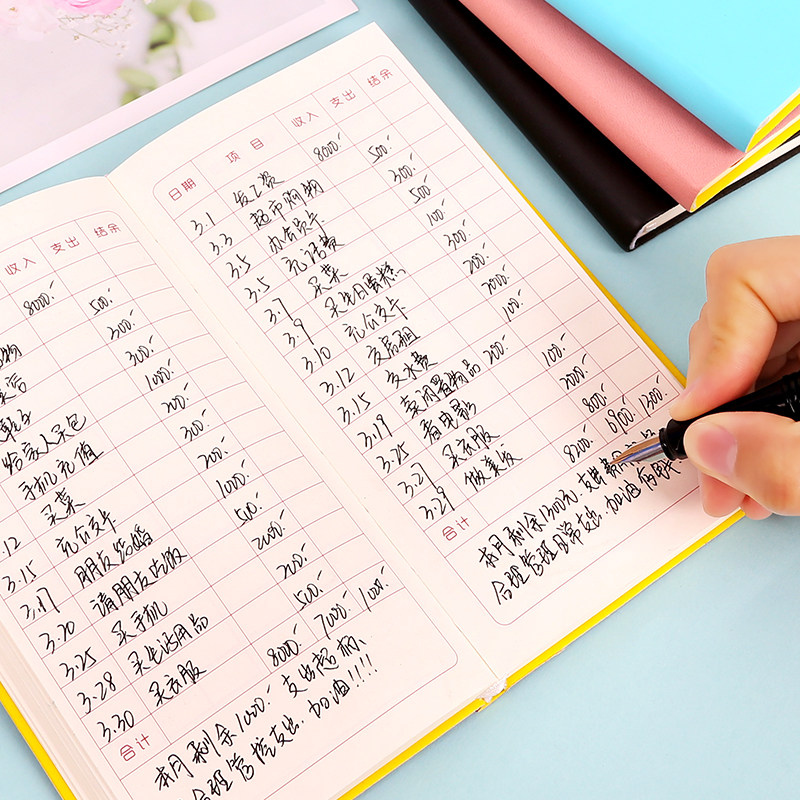 收入 支出 结余
8000.-
物 500.-
300.-
鞋子 300.-
给家人红包 1000.-
手机充值 200.-
买菜 300.-
12 充公交卡 200.-
3.15 朋友结婚 1000.-
3.17 请朋友吃饭 500.-
3.20 买手机 2000.-
3.25 买生活用品 200.-
3.28 买衣服 500.-
3.30
合计 8000.- 7000.- 1000.-
本月剩余1000.- 支出超标、
合理管控支出. 加油!!!!
日期 项目 收入 支出 结余
3.1 发工资 8000.-
3.3 超市购物 500.-
3.5 办会员卡 300.-
3.5 充话费 500.-
3.7 买菜 100.-
3.9 买生日蛋糕 300.-
3.10 充公交卡 200.-
3.12 交房租 2000.-
3.15 交水费 100.-
3.19 卖闲置物品 200.-
3.25 看电影 100.-
3.27 买衣服 2000.-
3.29 做美发 800.-
合计 8200.- 6900.- 1300.-
本月剩余1300元,支出费用
合理管理日常支出,加油